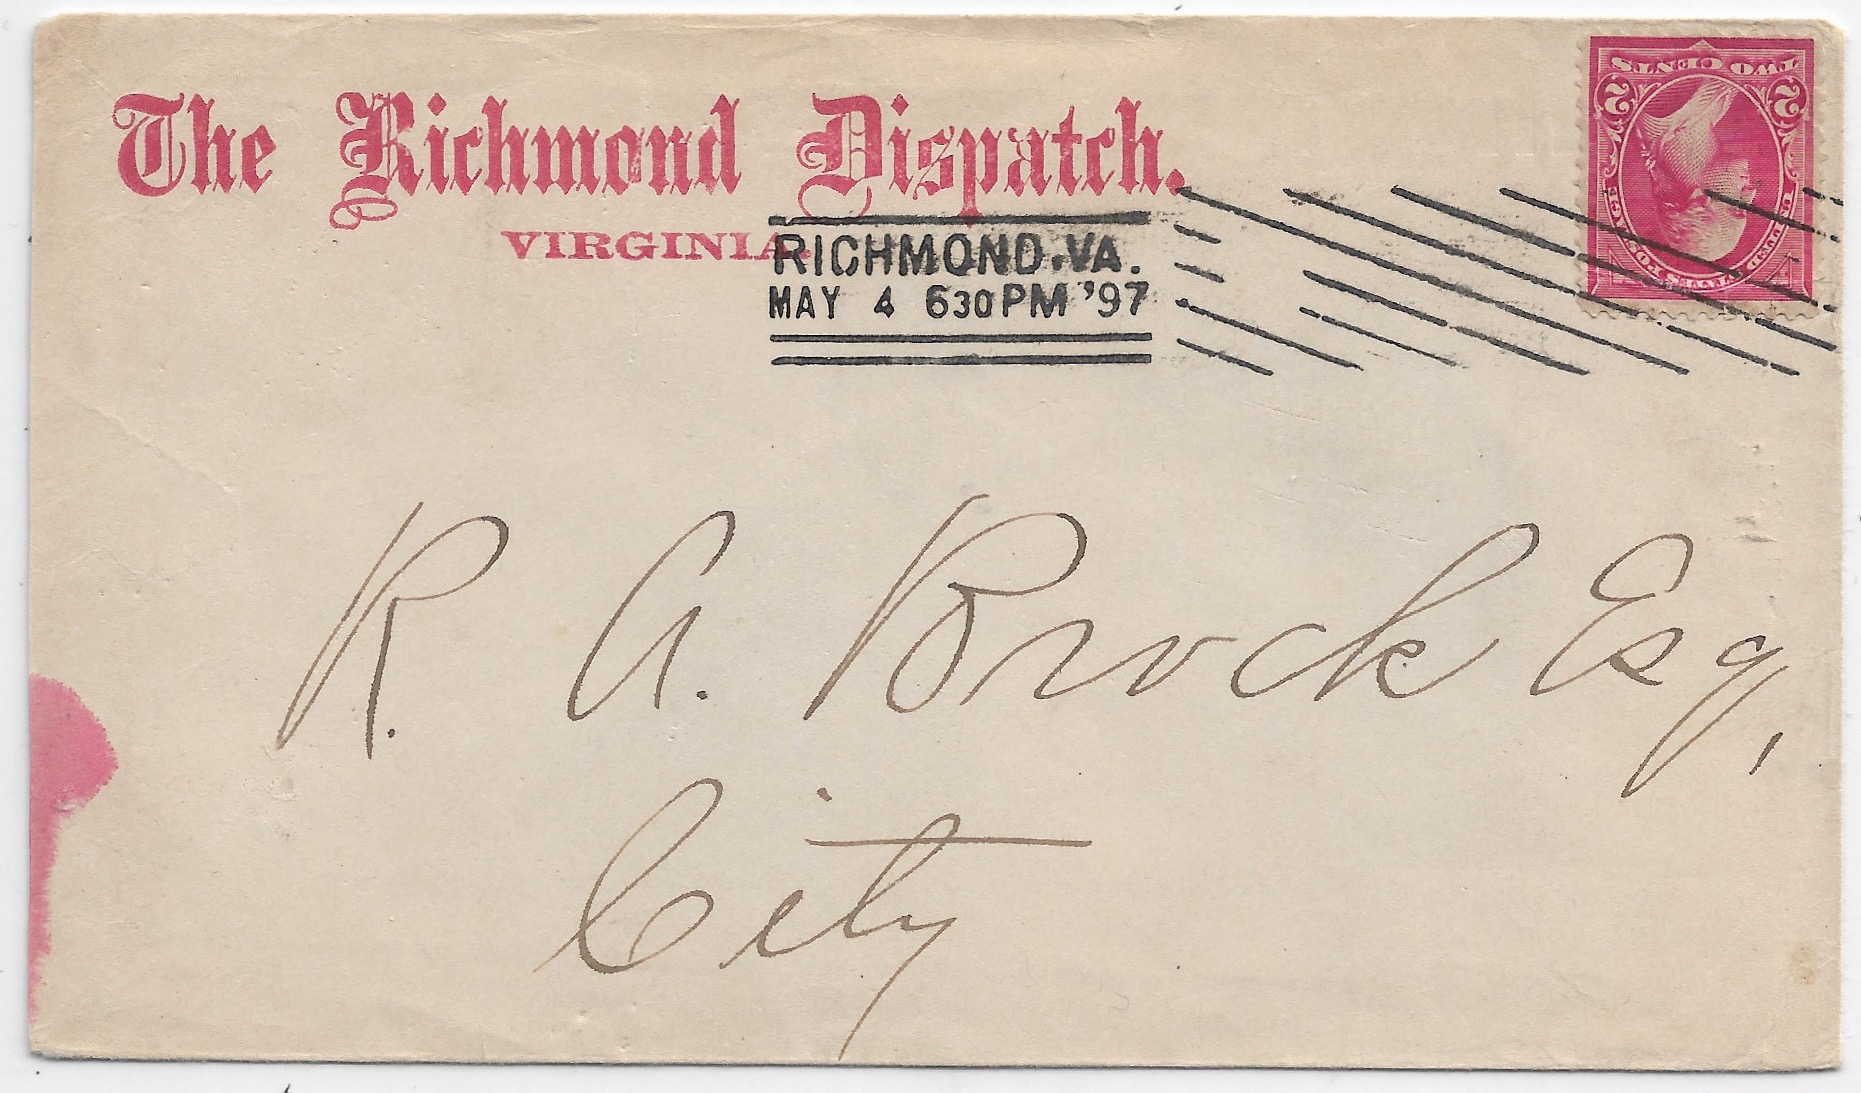 The Richmond Dispatch.
VIRGINIA.
RICHMOND, VA.
MAY 4 630 PM '97
TWO CENTS
2 2
UNITED STATES POSTAGE
R. A. Brock Esq,
City